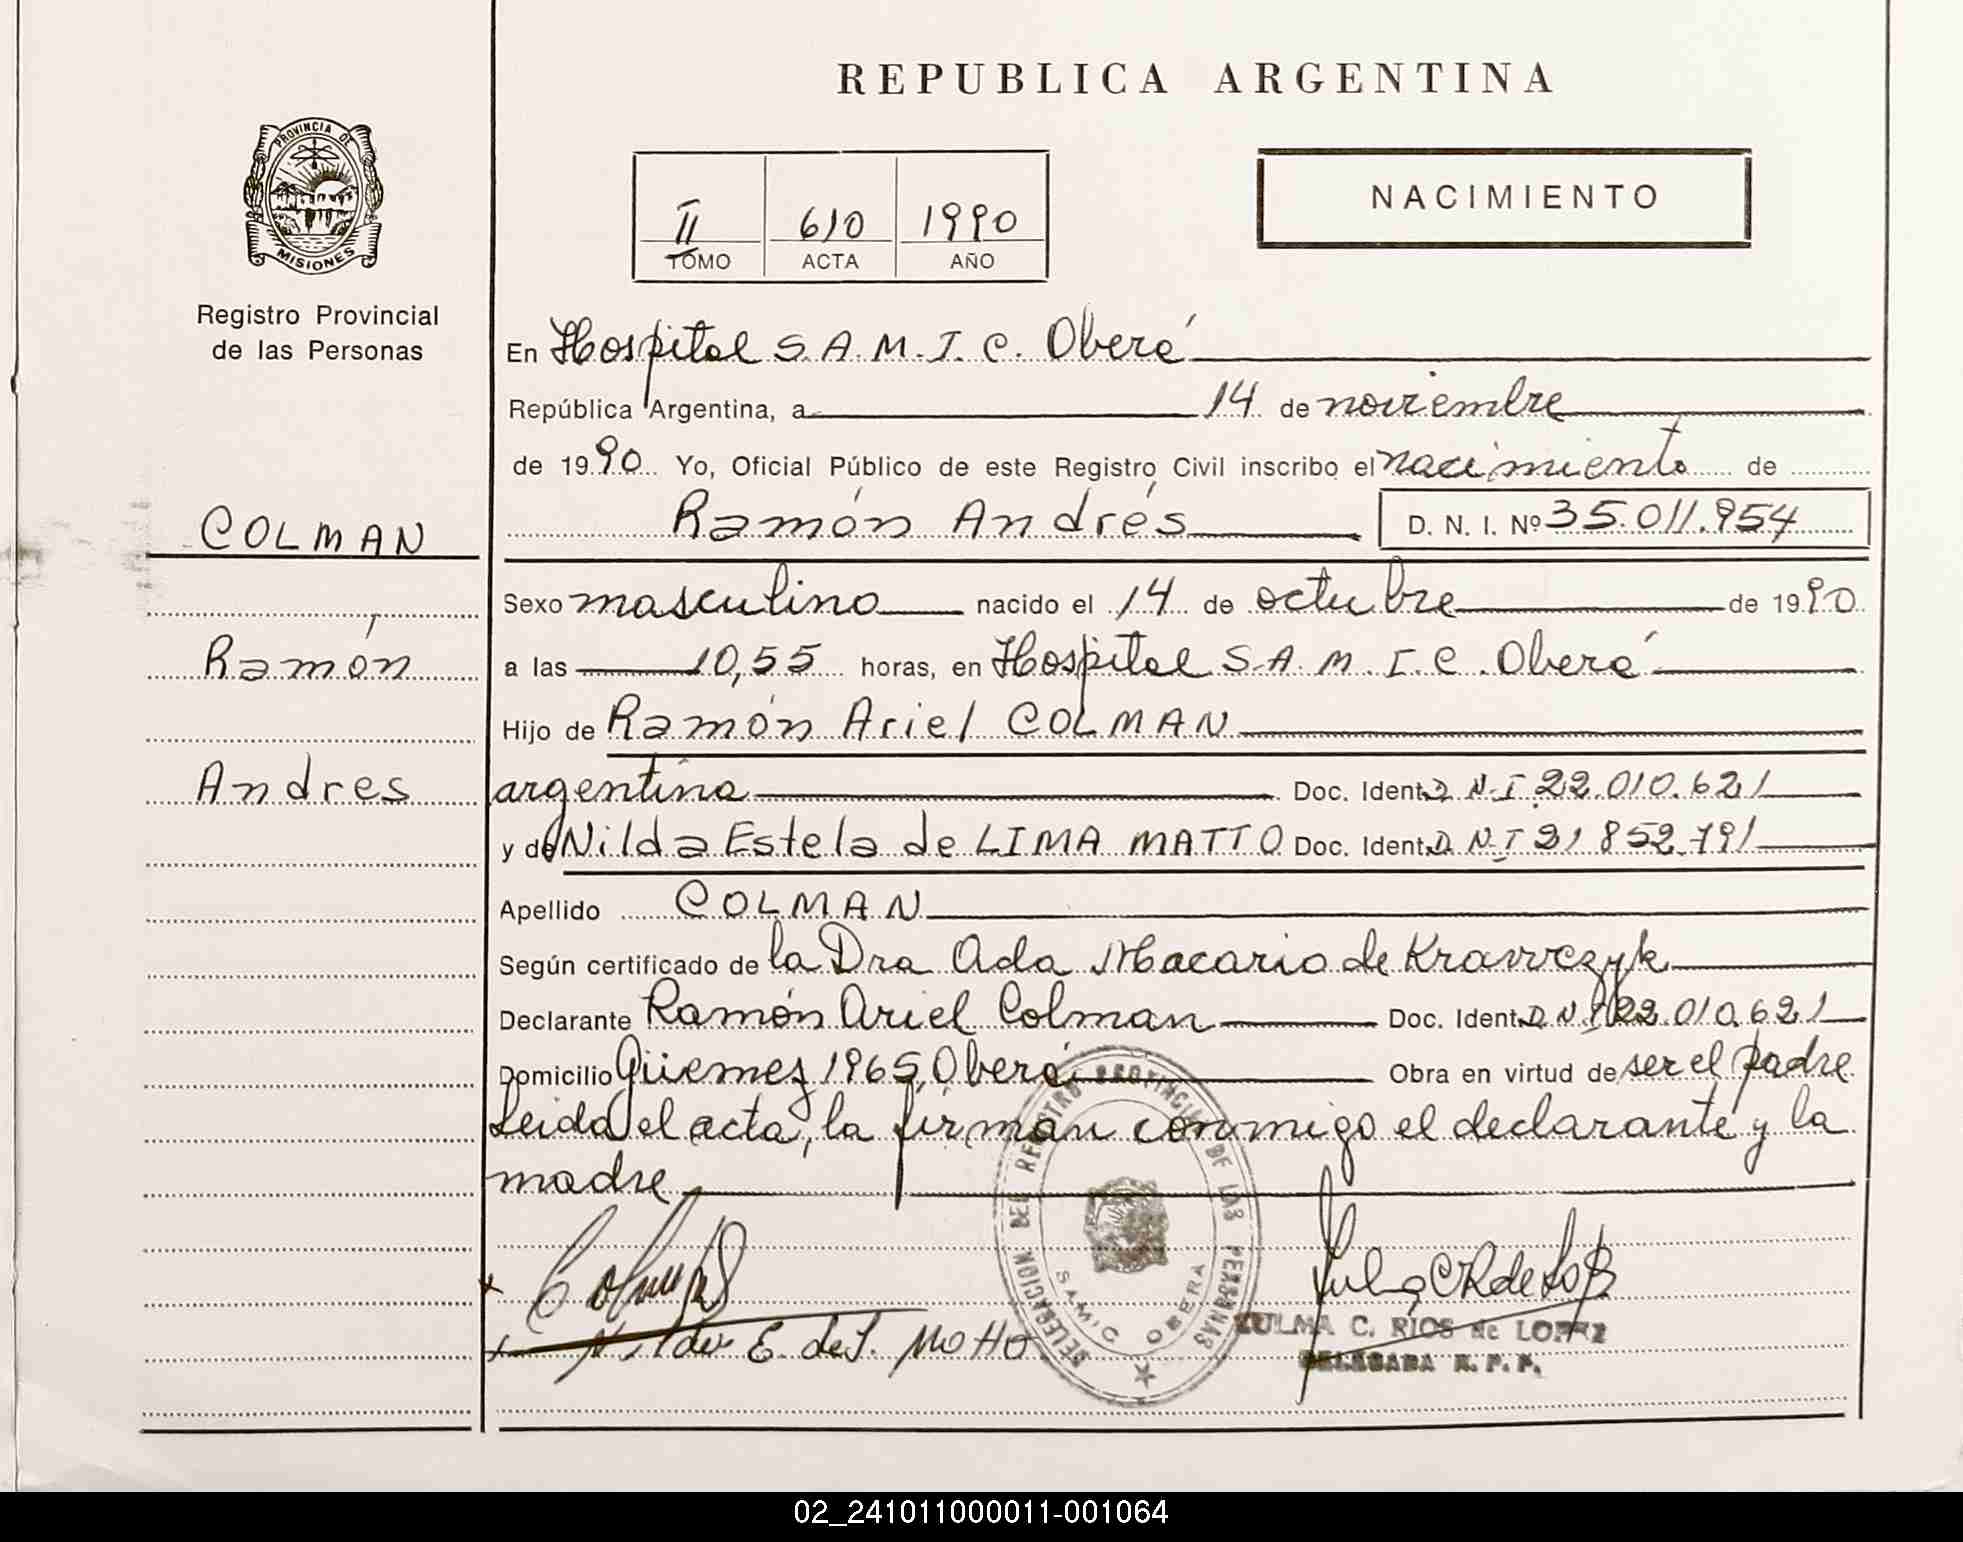 REPUBLICA ARGENTINA
PROVINCIA DE
MISIONES
Registro Provincial
de las Personas
NACIMIENTO
II 610 1990
TOMO ACTA AÑO
En Hospital S.A.M.I.C. Oberá
República Argentina, a 14 de noviembre
de 1990 Yo, Oficial Público de este Registro Civil inscribo el nacimiento de
COLMAN
Ramón Andrés D. N. I. Nº 35.011.954
Sexo masculino nacido el 14 de octubre de 1990
Ramón
a las 10,55 horas, en Hospital S.A.M.I.C. Oberá
Hijo de Ramón Ariel COLMAN
Andres
argentina Doc. Ident. D.N.I. 22.010.621
y de Nilda Estela de LIMA MATTO Doc. Ident. D.N.I 21.852.791
Apellido COLMAN
Según certificado de la Dra Ada Macario de Krawczyk
Declarante Ramón Ariel Colman Doc. Ident. D.N.I 22.010.621
Domicilio Güemes 1965, Oberá Obra en virtud de ser el padre
Leida el acta, la firman conmigo el declarante y la
madre
DELEGACION DEL REGISTRO PROVINCIAL DE LAS PERSONAS
SAMIC OBERA
Nilda E. de L. Motto
ZULMA C. RIOS de LOPEZ
DELEGADA R. P. P.
02_241011000011-001064